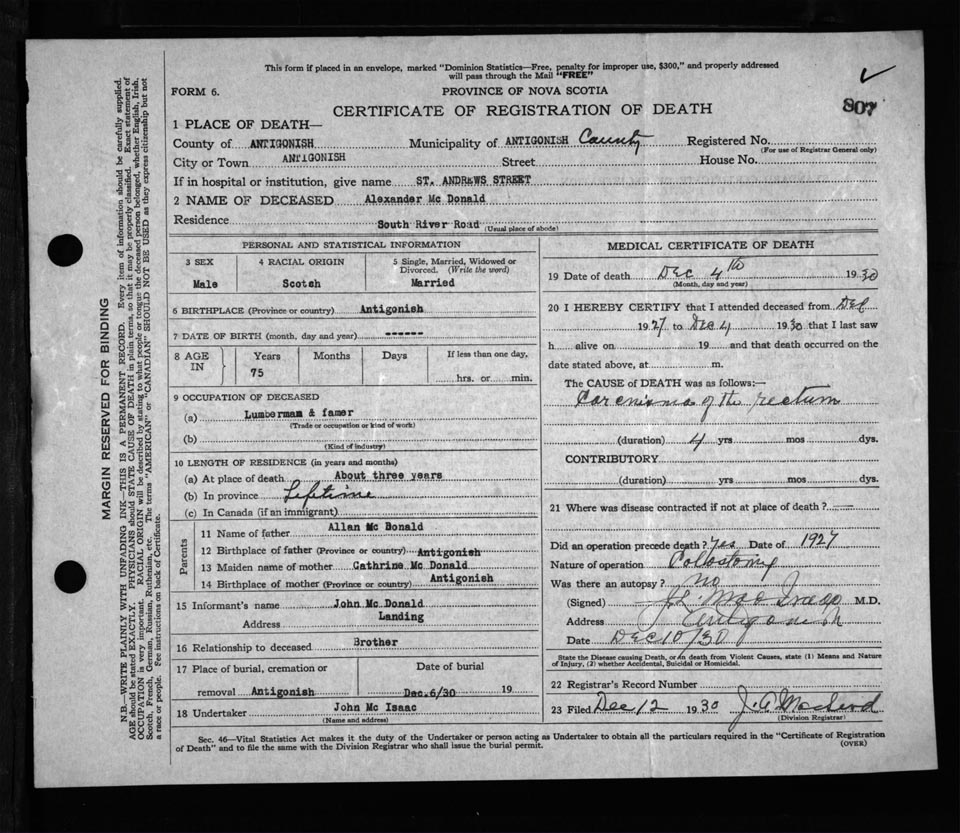 This form if placed in an envelope, marked "Dominion Statistics—Free, penalty for improper use, $300," and properly addressed
will pass through the Mail "FREE"
FORM 6. PROVINCE OF NOVA SCOTIA
CERTIFICATE OF REGISTRATION OF DEATH
807
1 PLACE OF DEATH—
County of ANTIGONISH Municipality of ANTIGONISH County Registered No.
(For use of Registrar General only)
City or Town ANTIGONISH Street House No.
If in hospital or institution, give name ST. ANDREWS STREET
2 NAME OF DECEASED Alexander Mc Donald
Residence South River Road
(Usual place of abode)
PERSONAL AND STATISTICAL INFORMATION
3 SEX 4 RACIAL ORIGIN 5 Single, Married, Widowed or
Divorced. (Write the word)
Male Scotch Married
6 BIRTHPLACE (Province or country) Antigonish
7 DATE OF BIRTH (month, day and year) ------
8 AGE IN Years Months Days If less than one day,
75 hrs. or min.
9 OCCUPATION OF DECEASED
(a) Lumberman & famer
(Trade or occupation or kind of work)
(b)
(Kind of industry)
10 LENGTH OF RESIDENCE (in years and months)
(a) At place of death About three years
(b) In province Lifetime
(c) In Canada (if an immigrant)
Parents
11 Name of father Allan Mc Donald
12 Birthplace of father (Province or country) Antigonish
13 Maiden name of mother Cathrine Mc Donald
14 Birthplace of mother (Province or country) Antigonish
15 Informant's name John Mc Donald
Address Landing
16 Relationship to deceased Brother
17 Place of burial, cremation or Date of burial
removal Antigonish Dec.6/30 19
18 Undertaker John Mc Isaac
(Name and address)
MEDICAL CERTIFICATE OF DEATH
19 Date of death Dec 4th 1930
(Month, day and year)
20 I HEREBY CERTIFY that I attended deceased from Dec
1927 to Dec 4 1930 that I last saw
h alive on 19 and that death occurred on the
date stated above, at m.
The CAUSE of DEATH was as follows:—
Carcnisma of the rectum
(duration) 4 yrs mos dys.
CONTRIBUTORY
(duration) yrs mos dys.
21 Where was disease contracted if not at place of death?
Did an operation precede death? Yes Date of 1927
Nature of operation Collostomy
Was there an autopsy? No
(Signed) M.D.
Address Antigonish
Date DEC 10/30
State the Disease causing Death, or, in death from Violent Causes, state (1) Means and Nature
of Injury, (2) whether Accidental, Suicidal or Homicidal.
22 Registrar's Record Number
23 Filed Dec 12 1930 J. A. Macleod
(Division Registrar)
Sec. 46—Vital Statistics Act makes it the duty of the Undertaker or person acting as Undertaker to obtain all the particulars required in the "Certificate of Registration
of Death" and to file the same with the Division Registrar who shall issue the burial permit. (OVER)
MARGIN RESERVED FOR BINDING
N.B.—WRITE PLAINLY WITH UNFADING INK—THIS IS A PERMANENT RECORD. Every item of information should be carefully supplied.
AGE should be stated EXACTLY. PHYSICIANS should STATE CAUSE OF DEATH in plain terms, so that it may be properly classified. Exact statement of
OCCUPATION is very important. RACIAL ORIGIN will be described by stating to what people or tongue the deceased person belonged, whether English, Irish,
Scotch, French, German, Russian, Ruthenian, etc. The terms "AMERICAN" or "CANADIAN" SHOULD NOT BE USED as they express citizenship but not
a race or people. Fee instructions on back of Certificate.